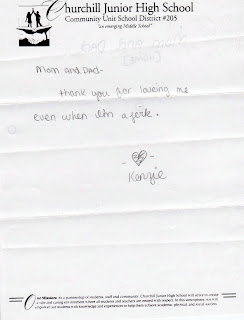 Churchill Junior High School
Community Unit School District #205
"an emerging Middle School"
Mom and Dad-
thank you for loveing me
even when I'm a jerk.
Kenzie
Our Mission: As a partnership of students, staff and community, Churchill Junior High School will strive to create
a safe and caring environment where all students and teachers are treated with respect. In this atmosphere, we will
empower our students with knowledge and experiences to help them achieve academic, physical, and social success.